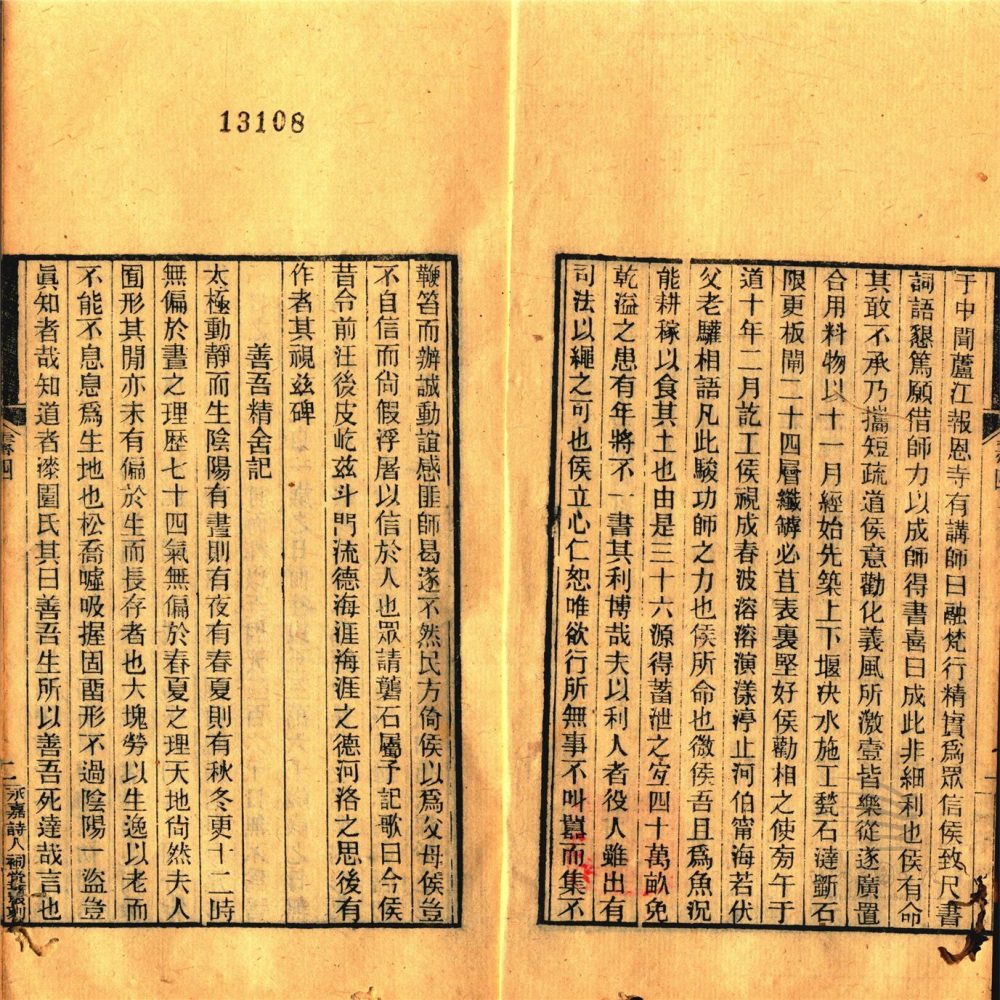 13108
于中聞蘆江報恩寺有講師曰融梵行精實爲眾信侯致尺書
詞語懇篤願借師力以成師得書喜曰成此非細利也侯有命
其敢不承乃攜短疏道侯意勸化義風所激壹皆樂從遂廣置
合用料物以十一月經始先築上下堰決水施工甃石澾斵石
限更板閘二十四層纖罅必苴表裏堅好侯勸相之使旁午于
道十年二月訖工侯視成春波溶溶演漾渟止河伯甯海若伏
父老驩相語凡此駿功師之力也侯所命也微侯吾且爲魚況
能耕稼以食其土也由是三十六源得蓄泄之宐四十萬畝免
乾溢之患有年將不一書其利博哉夫以利人者役人雖出有
司法以繩之可也侯立心仁恕唯欲行所無事不叫囂而集不
鞭笞而辦誠動誼感匪師曷遂不然民方倚侯以爲父母侯豈
不自信而尙假浮屠以信於人也眾請礱石屬予記歌曰今侯
昔令前汪後皮屹兹斗門流德海涯海涯之德河洛之思後有
作者其視兹碑
善吾精舍記
太極動靜而生陰陽有晝則有夜有春夏則有秋冬更十二時
無偏於晝之理歷七十四氣無偏於春夏之理天地尙然夫人
囿形其閒亦未有偏於生而長存者也大塊勞以生逸以老而
不能不息息爲生地也松喬噓吸握固畱形不過陰陽一盜豈
眞知者哉知道者漆園氏其曰善吾生所以善吾死達哉言也
卷四
十一
永嘉詩人祠堂叢刻